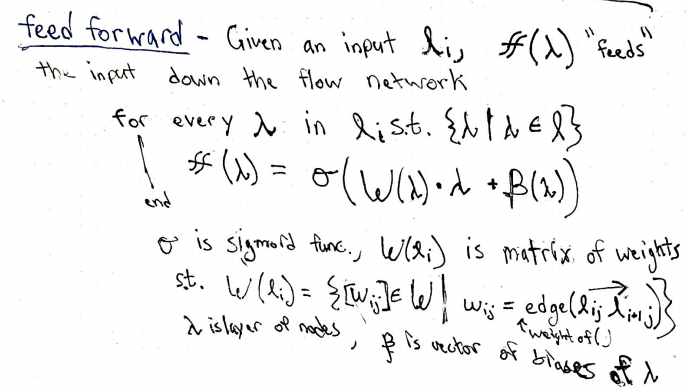 feed forward - Given an input ℓi, ff(λ) "feeds"
the input down the flow network
for every λ in ℓi s.t. {λ | λ ∈ ℓ}
ff(λ) = σ(W(λ)·λ + β(λ))
end
σ is sigmoid func., W(ℓi) is matrix of weights
s.t. W(ℓi) = {[wij] ∈ W | wij = edge(ℓij ℓi+1j)}
↑weight of ( )
λ is layer of nodes, β is vector of biases of λ